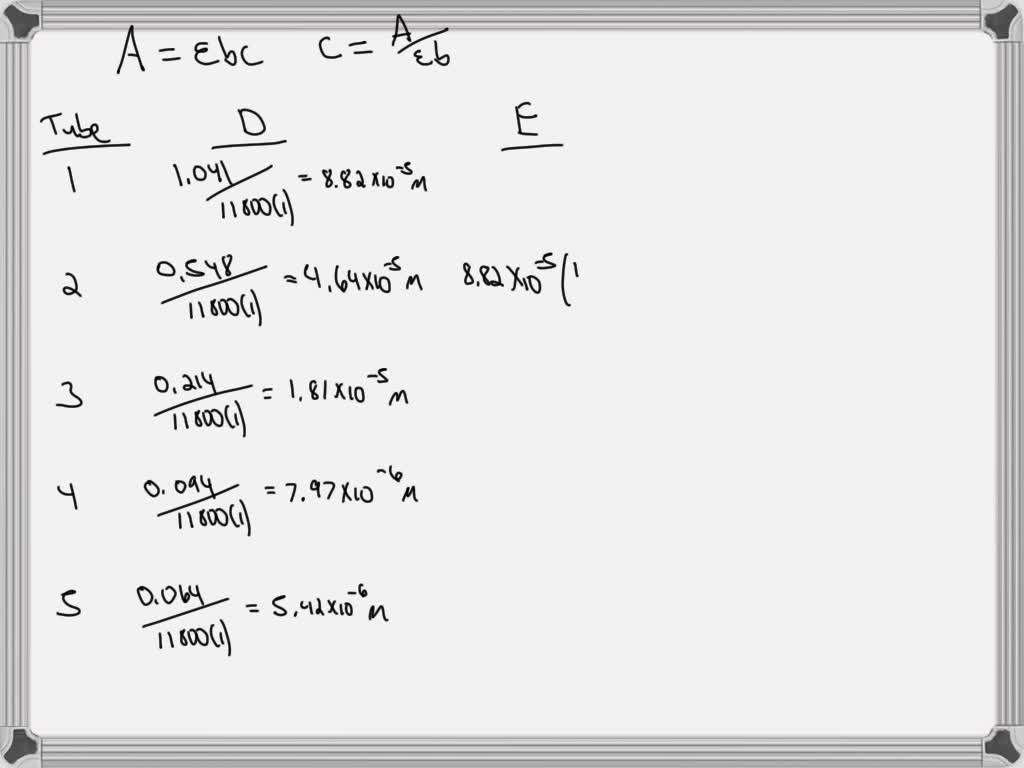 A = εbc   c = A/εb
Tube   D   E
1   1.041/11800(1) = 8.82×10⁻⁵ M
2   0.548/11800(1) = 4.64×10⁻⁵ M   8.82×10⁻⁵(1
3   0.214/11800(1) = 1.81×10⁻⁵ M
4   0.094/11800(1) = 7.97×10⁻⁶ M
5   0.064/11800(1) = 5.42×10⁻⁶ M